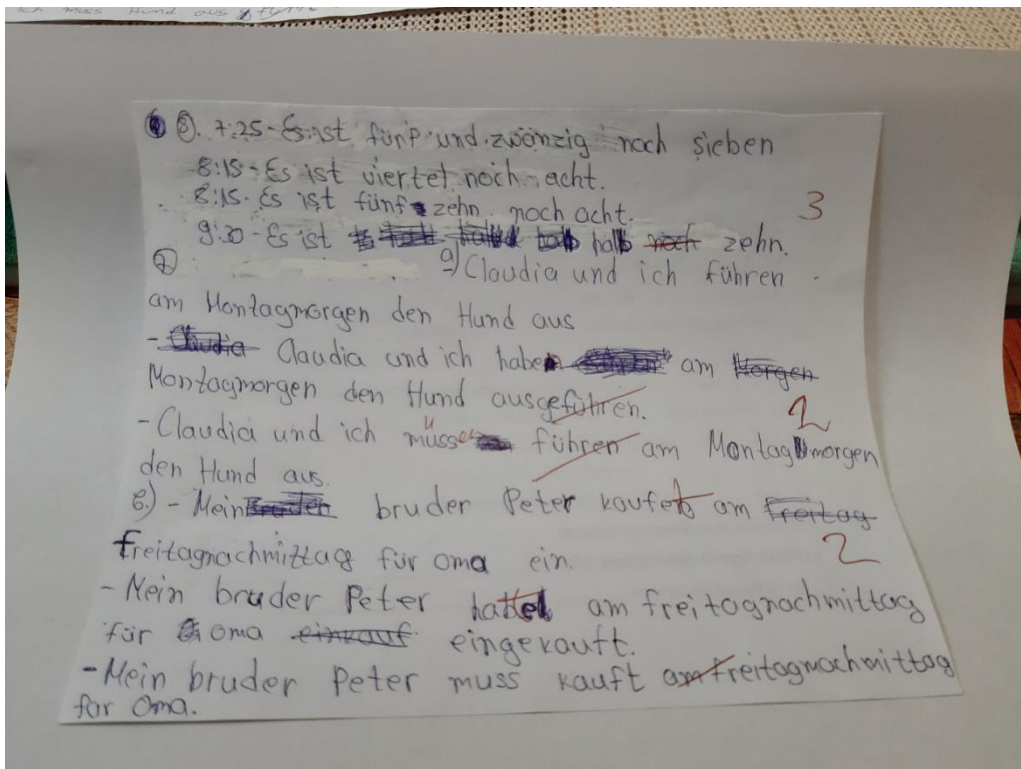 ich muss Hund aus
8. 7:25 - Es ist fünf und zwönzig noch sieben
8:15 - Es ist viertet noch acht.
8:15 - Es ist fünf zehn noch acht. 3
9:30 - Es ist halb noch zehn.
7 a) Claudia und ich führen
am Montagmorgen den Hund aus
- Claudia Claudia und ich haben am Morgen
Montagmorgen den Hund ausgeführen. 2
- Claudia und ich müssen führen am Montagmorgen
den Hund aus.
в.) - Mein bruder Peter kaufet am freitag
freitagnachmittag für oma ein. 2
- Mein bruder Peter am freitognachmittag
für oma einkauf eingekauft.
- Mein bruder Peter muss kauft am freitagnachmittag
für Oma.